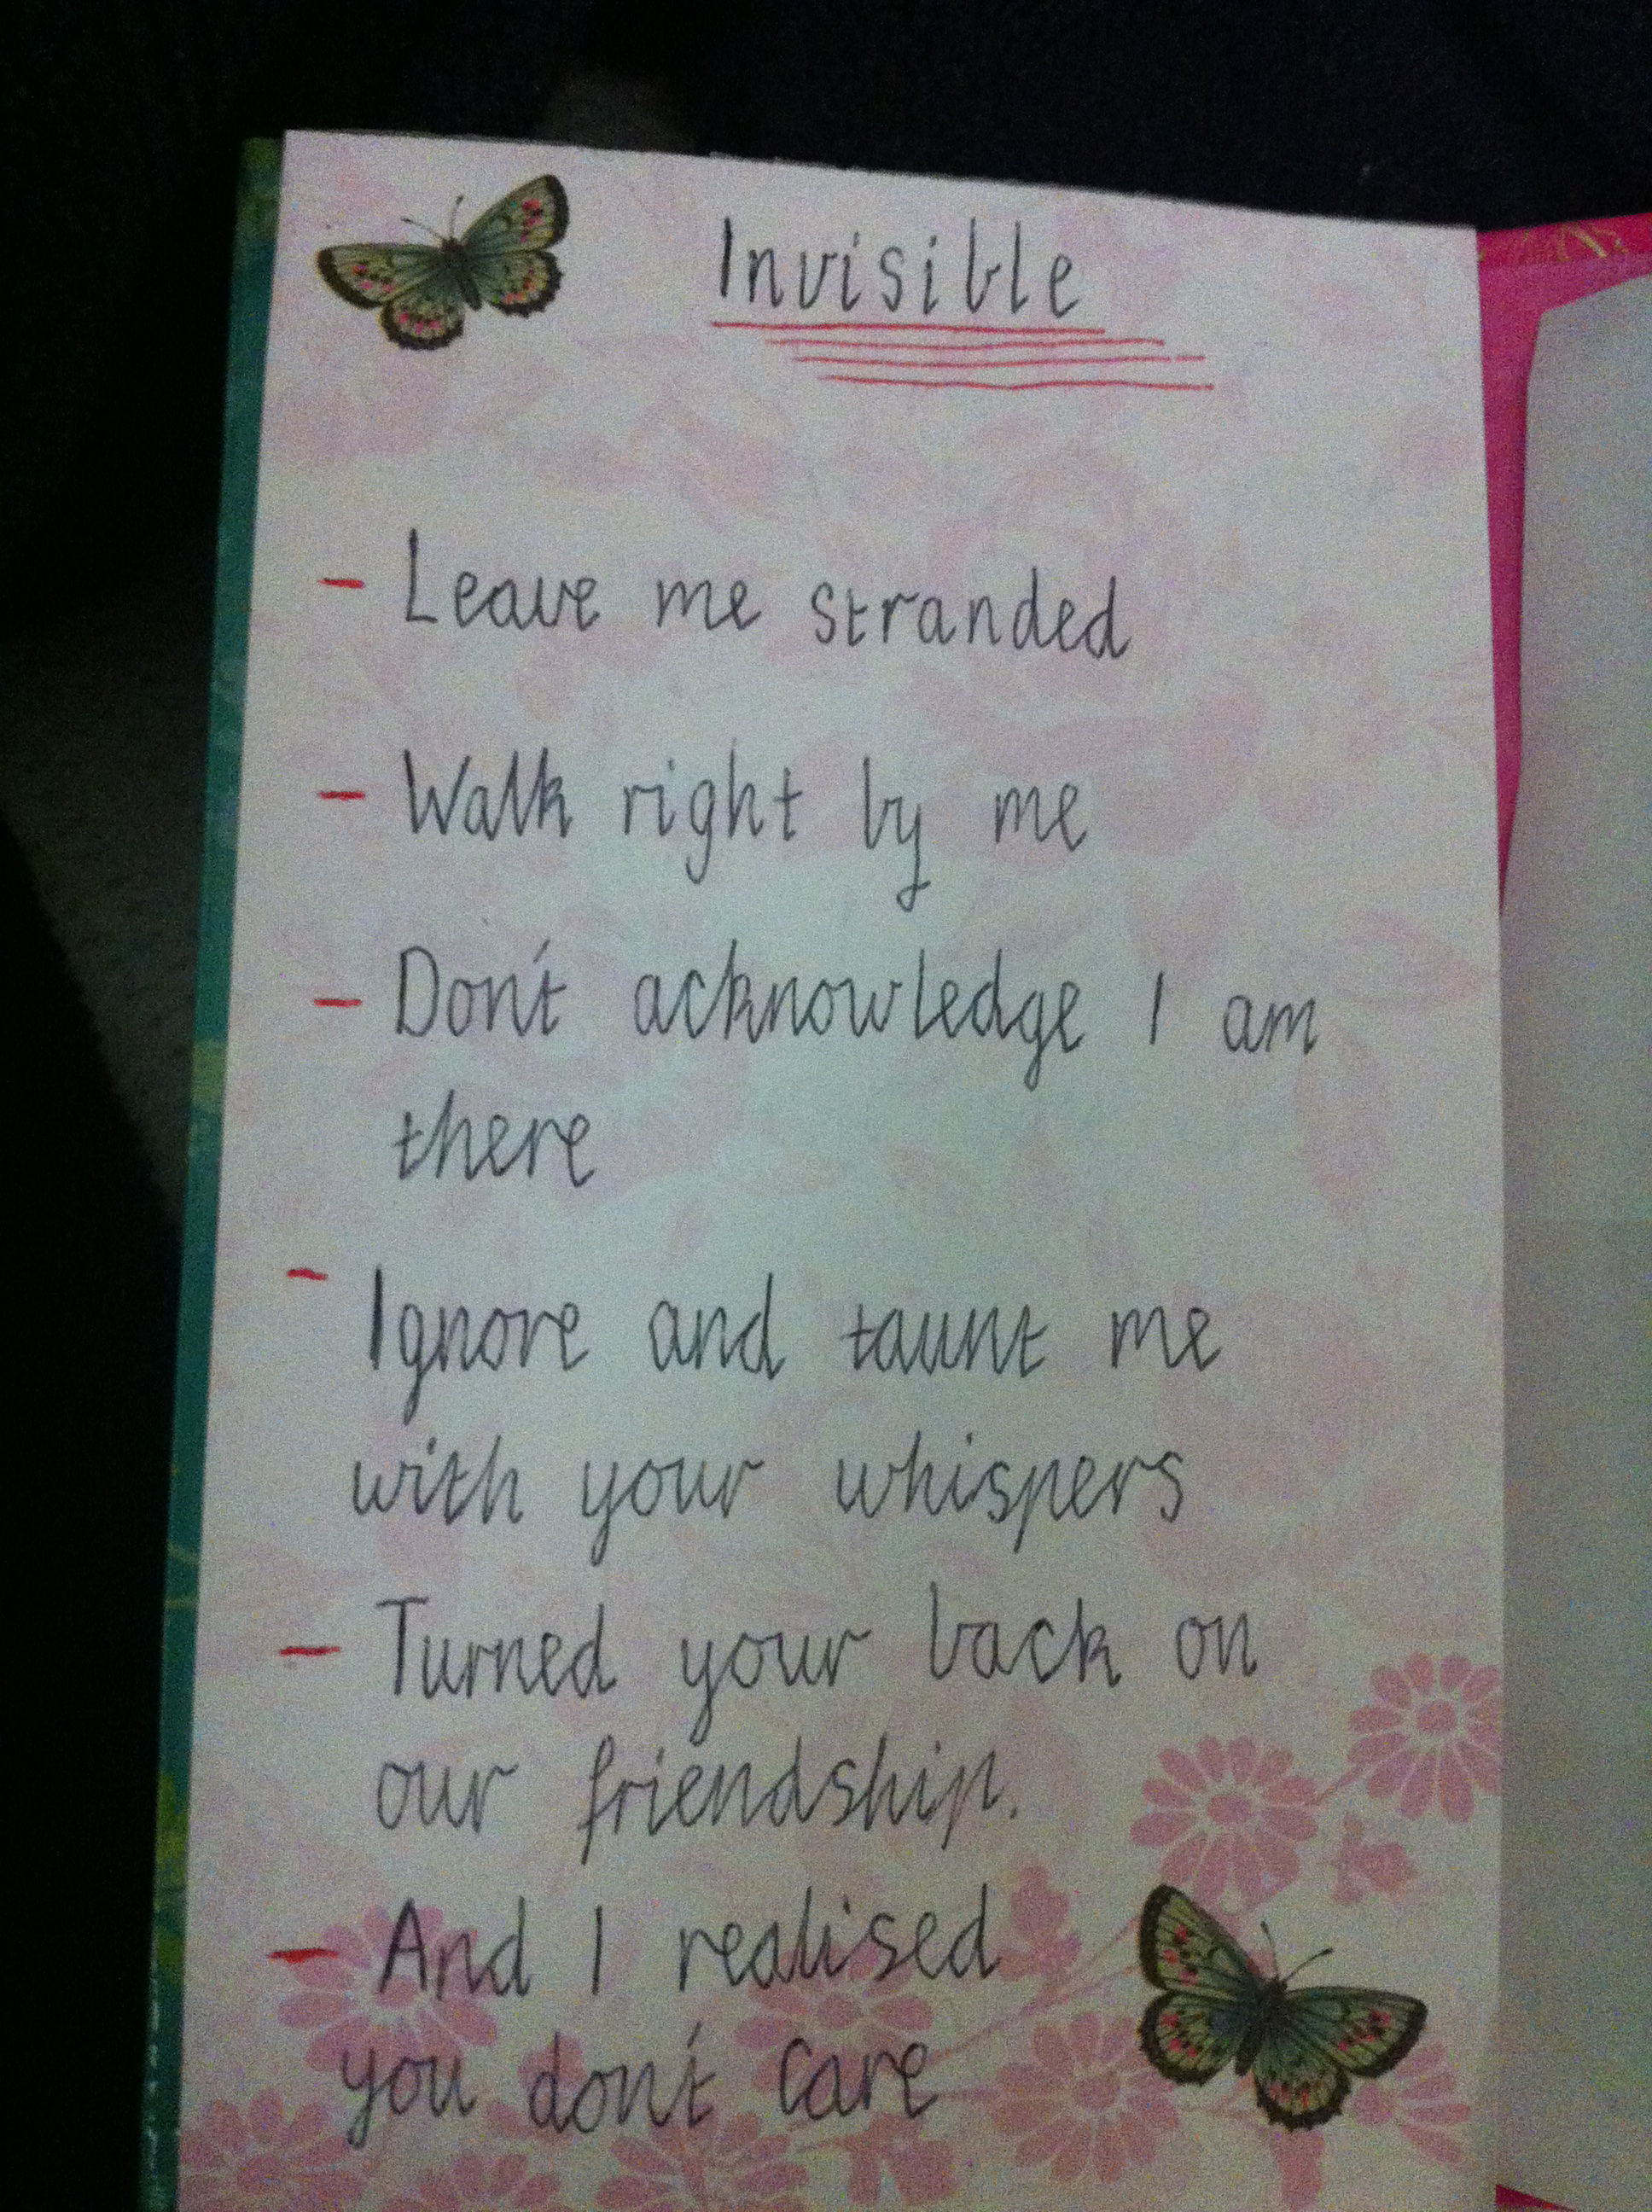 Invisible
- Leave me stranded
- Walk right by me
- Don't acknowledge I am
there
- Ignore and taunt me
with your whispers
- Turned your back on
our friendship.
- And I realised
you don't care